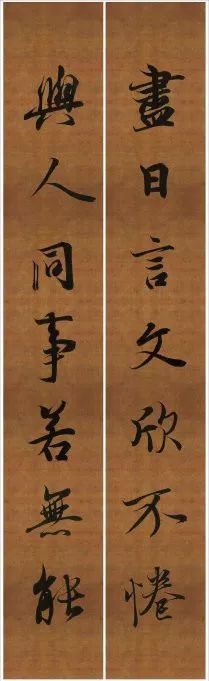 盡日言文欣不惓
與人同事若無能